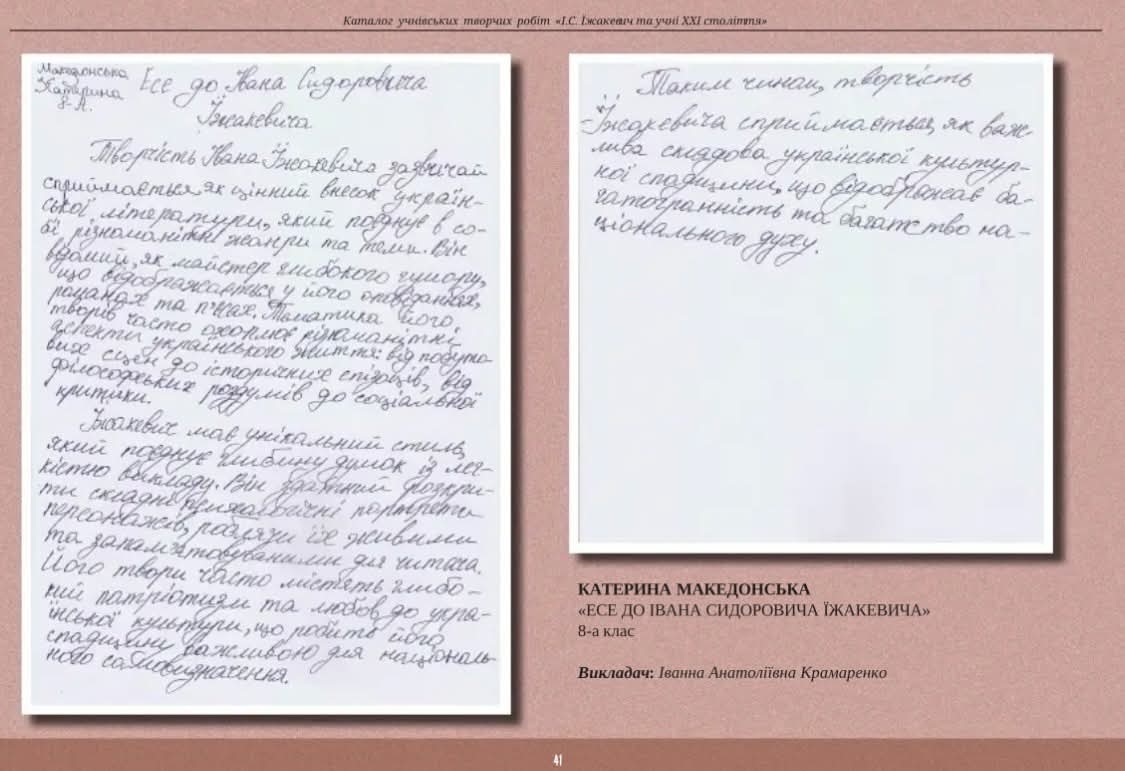 Каталог учнівських творчих робіт «І.С. Їжакевич та учні XXI століття»
Македонська
Катерина
8-А.
Есе до Івана Сидоровича
Їжакевича
Творчість Івана Їжакевича зазвичай
сприймається, як цінний внесок україн-
ської літератури, який поєднує в со-
бі різноманітні жанри та теми. Він
відомий, як майстер глибокого гумору,
що відображається у його оповіданнях,
романах та п'єсах. Тематика його
творів часто охоплює різноманітні
аспекти українського життя: від побуто-
вих сцен до історичних епізодів, від
філософських роздумів до соціальної
критики.
Їжакевич має унікальний стиль,
який поєднує глибину думок із лег-
кістю викладу. Він здатний розкри-
ти складні психологічні портрети
персонажів, роблячи їх живими
та запам'ятовуваними для читача.
Його твори часто містять глибо-
кий патріотизм та любов до укра-
їнської культури, що робить його
спадщину важливою для національ-
ного самовизначення.
Таким чином, творчість
Їжакевича сприймається, як важ-
лива складова української культур-
ної спадщини, що відображає ба-
гатогранність та багатство на-
ціонального духу.
КАТЕРИНА МАКЕДОНСЬКА
«ЕСЕ ДО ІВАНА СИДОРОВИЧА ЇЖАКЕВИЧА»
8-а клас
Викладач: Іванна Анатоліївна Крамаренко
41